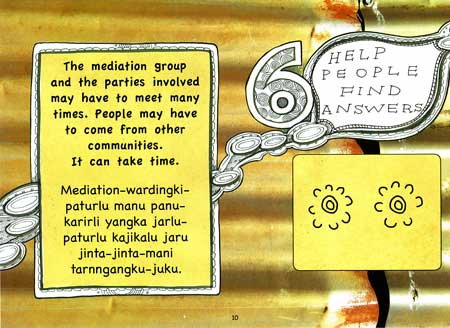 The mediation group
and the parties involved
may have to meet many
times. People may have
to come from other
communities.
It can take time.
Mediation-wardingki-
paturlu manu panu-
karirli yangka jarlu-
paturlu kajikalu jaru
jinta-jinta-mani
tarnngangku-juku.
6
HELP
PEOPLE
FIND
ANSWERS
10